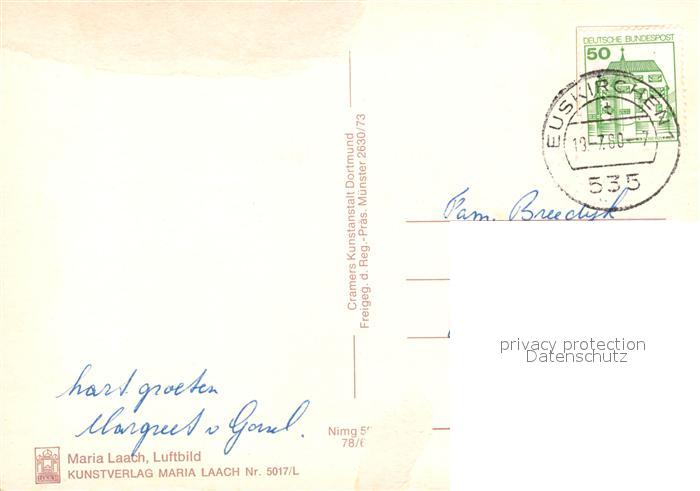 DEUTSCHE BUNDESPOST
50
EUSKIRCHEN
535
Fam. Breedijk
Cramers Kunstanstalt Dortmund
Freigeg. d. Reg.-Präs. Münster 2630/73
privacy protection
Datenschutz
hart. groeten
Margreet v
Nimg
78/6
Maria Laach, Luftbild
KUNSTVERLAG MARIA LAACH Nr. 5017/L